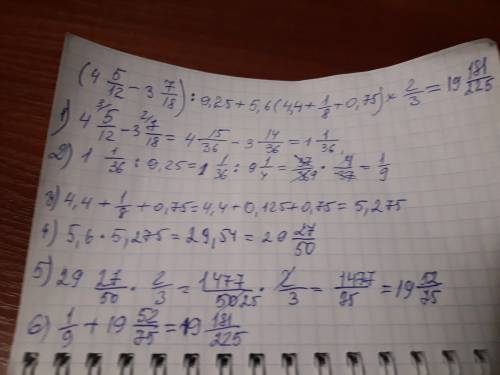 (4 5/12 - 3 7/18) : 9,25 + 5,6 (4,4 + 1/8 + 0,75) × 2/3 = 19 181/225
1) 4 5/12 - 3 7/18 = 4 15/36 - 3 14/36 = 1 1/36
2) 1 1/36 : 9,25 = 1 1/36 : 9 1/4 = 37/36 · 4/37 = 1/9
3) 4,4 + 1/8 + 0,75 = 4,4 + 0,125 + 0,75 = 5,275
4) 5,6 · 5,275 = 29,54 = 29 27/50
5) 29 27/50 · 2/3 = 1477/50 25 · 2/3 = 1477/75 = 19 52/75
6) 1/9 + 19 52/75 = 19 181/225